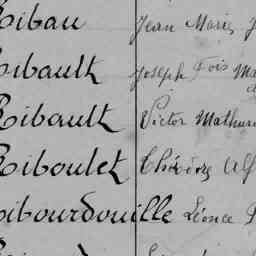 Ribau Jean Marie J
Ribault Joseph Fois Ma
Ribault Victor Mathuri
Riboulet Théodore Alf
Ribourdouille Léonce